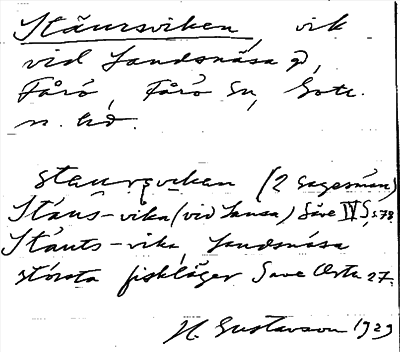 Stäursviken, vik
vid Sandsnäsa på
Fårö, Fårö sn, Gotl.
n. hd.
staurşvikan (2 sagesmän)
Stáus-vika (vid Lansa) Säve IV S, s. 78.
Stáuts-vika, Sandsnäsa
största fiskläger Säve Ortn 27.
H. Gustavson 1929